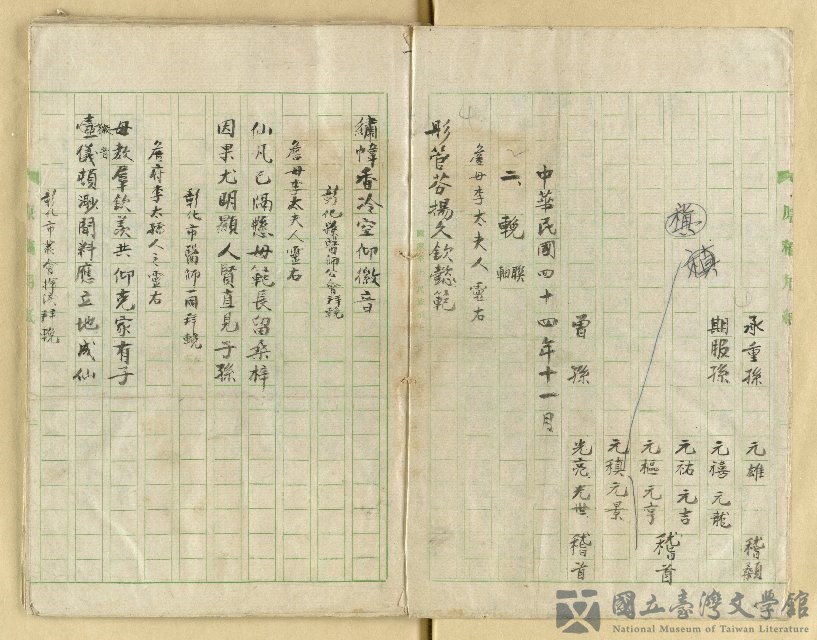 承重孫 元雄 稽顙
期服孫 元禧 元龍
元祐 元吉 稽首
元樞 元亨
禛 禛 元禛 元景
曾孫 光亮 光世 稽首
中華民國四十四年十一月
二、輓聯軸
詹母李太夫人靈右
彤管芬揚久欽懿範
繡幃香冷空仰徽音
彰化縣醫師公會拜輓
詹母李太夫人靈右
仙凡已隔懸母範長留桑梓
因果尤明顯人賢直見子孫
彰化市醫師一同拜輓
詹府李太孺人之靈右
母教羣欽羨共仰克家有子
壼儀頓渺聞料應立地成仙
彰化市 拜輓
國立臺灣文學館
National Museum of Taiwan Literature